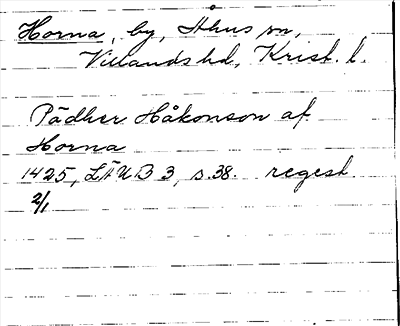 Horna, by, Åhus sn,
Villands hd, Krist. l.
Pädher Håkonson af
Horna
1425, LÄUB 3, s.38. regest.
2/1